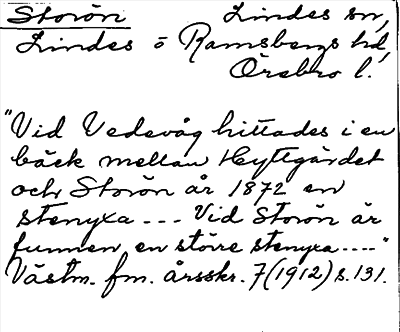 Storön Lindes sn,
Lindes o Ramsbergs hd,
Örebro l.
"Vid Vedevåg hittades i en
bäck mellan Hyttgärdet
och Storön år 1872 en
stenyxa --- Vid Storön är
funnen en större stenyxa ...."
Västm. fm. årsskr. 7 (1912) s. 131.